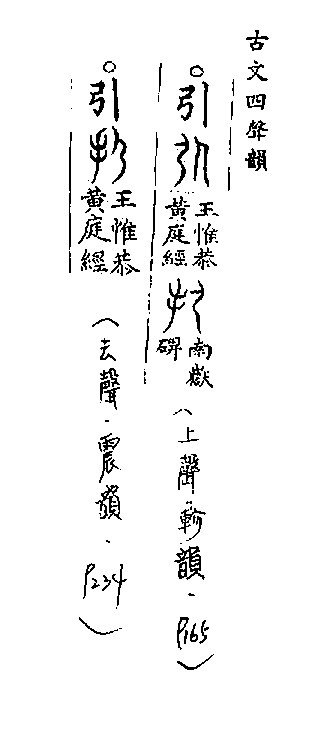 古文四聲韻
○引 王惟恭黃庭經 南嶽碑(上聲·軫韻·P165)
○引 王惟恭黃庭經(去聲·震韻·P234)